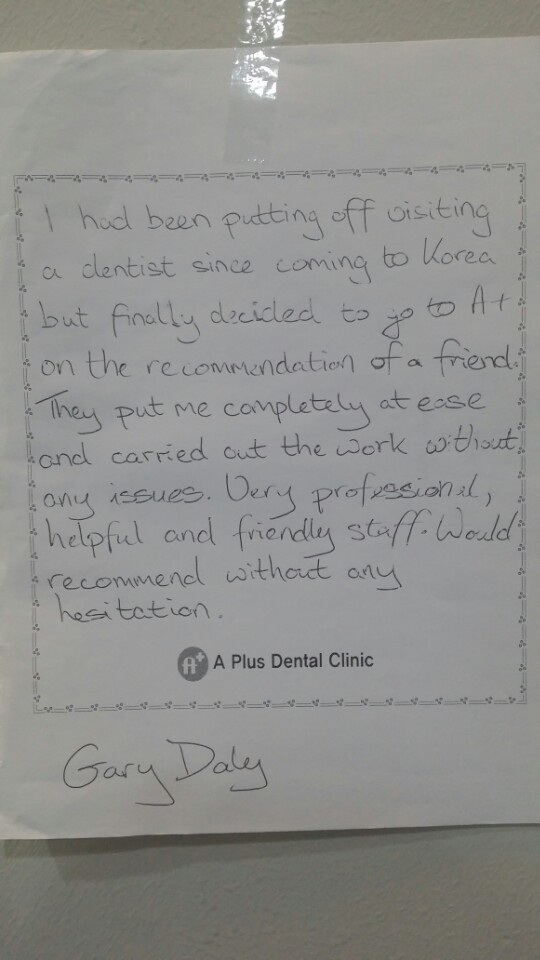 I had been putting off visiting
a dentist since coming to Korea
but finally decided to go to A+
on the recommendation of a friend.
They put me completely at ease
and carried out the work without
any issues. Very professional,
helpful and friendly staff. Would
recommend without any
hesitation.
A+ A Plus Dental Clinic
Gary Daly